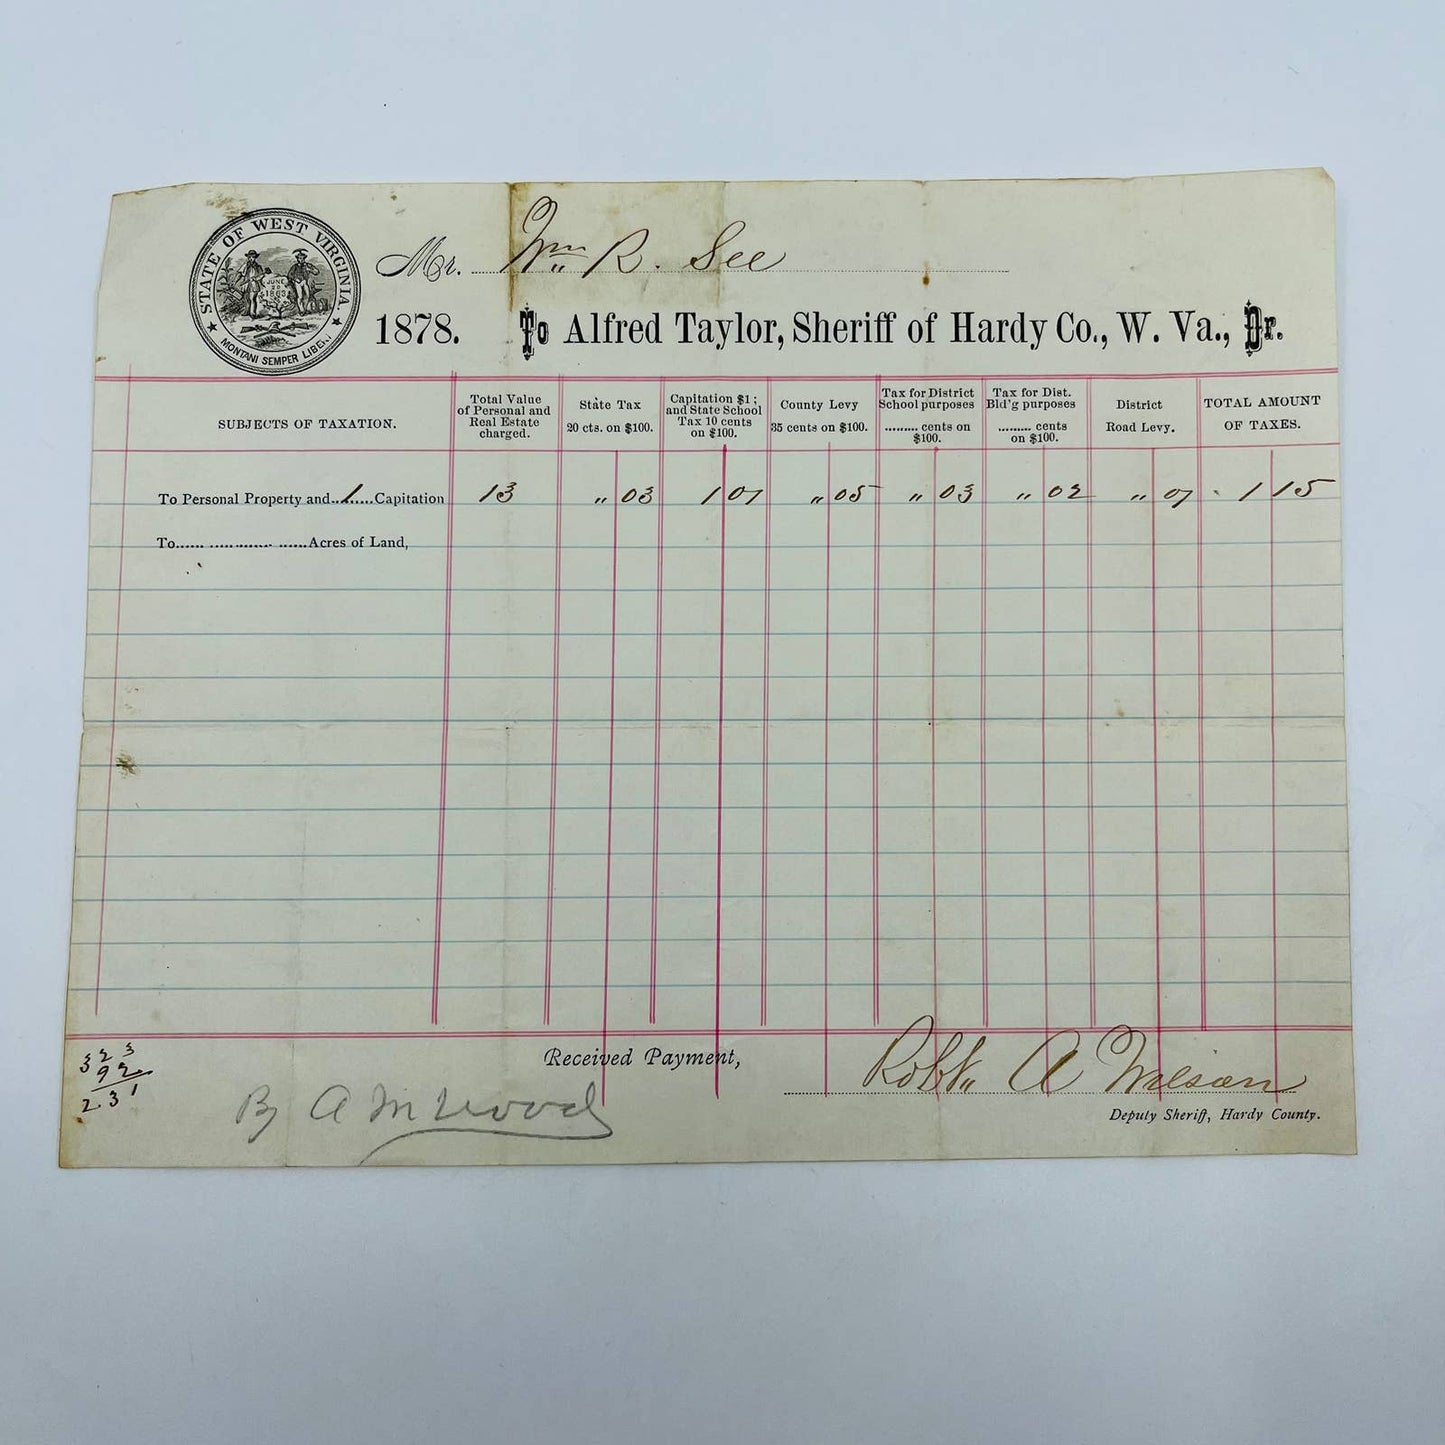 STATE OF WEST VIRGINIA.
JUNE 20 1863
MONTANI SEMPER LIBERI
Mr. Wm R. See
1878. To Alfred Taylor, Sheriff of Hardy Co., W. Va., Dr.
SUBJECTS OF TAXATION.
Total Value
of Personal and
Real Estate
charged.
State Tax
20 cts. on $100.
Capitation $1;
and State School
Tax 10 cents
on $100.
County Levy
35 cents on $100.
Tax for District
School purposes
......... cents on
$100.
Tax for Dist.
Bld'g purposes
......... cents
on $100.
District
Road Levy.
TOTAL AMOUNT
OF TAXES.
To Personal Property and 1 Capitation 13 " 03 1 01 " 05 " 03 " 02 " 01 1 15
To...... ............. ......Acres of Land,
323
92
231
Received Payment,
Robt. A Wilson
Deputy Sheriff, Hardy County.
By A M Wood